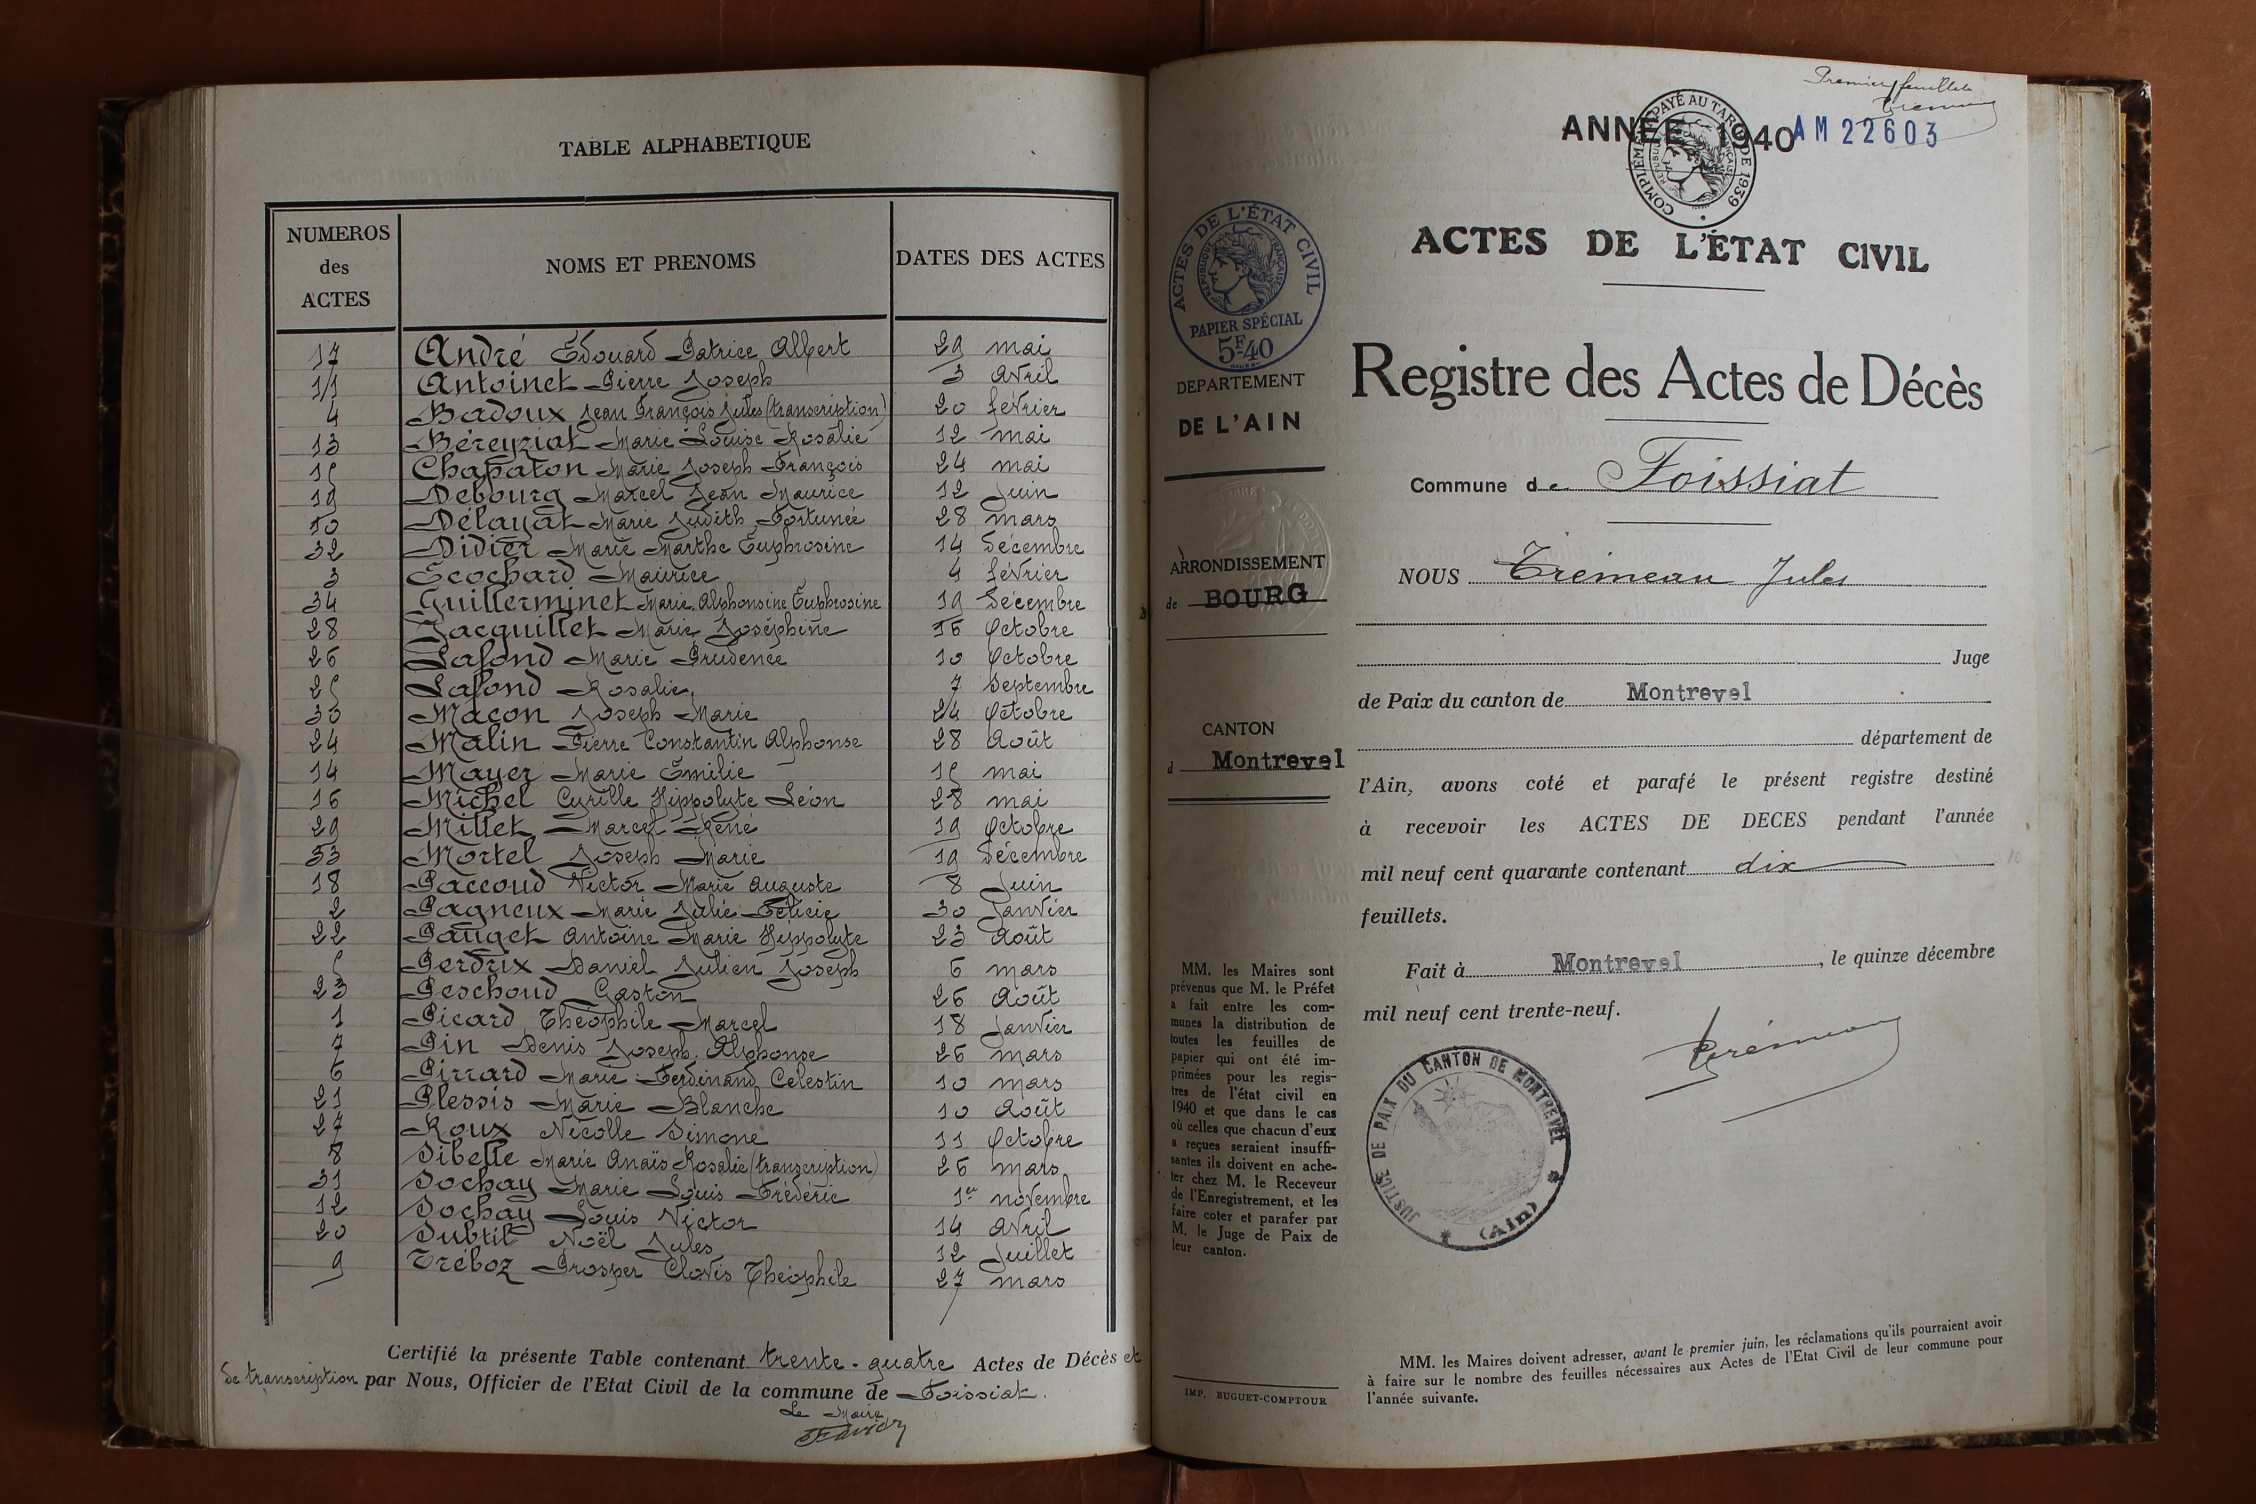 TABLE ALPHABETIQUE
NUMEROS des ACTES | NOMS ET PRENOMS | DATES DES ACTES
17 André Edouard Patrice Albert 29 mai
11 Antoinet Pierre Joseph 3 avril
4 Badoux Jean François Jules (transcription) 20 février
13 Béreyziat Marie Louise Rosalie 12 mai
15 Chapaton Marie Joseph François 24 mai
19 Debourg Marcel Jean Maurice 12 Juin
10 Délayat Marie Judith Fortunée 28 mars
32 Didier Marie Marthe Euphrosine 14 Décembre
3 Ecochard Maurice 4 février
34 Guillerminet Marie Alphonsine Euphrosine 19 Décembre
28 Jacquillet Marie Joséphine 16 Octobre
26 Lafond Marie Prudence 10 Octobre
25 Lafond Rosalie 7 Septembre
30 Maçon Joseph Marie 24 Octobre
24 Malin Pierre Constantin Alphonse 28 Août
14 Mayer Marie Emilie 15 mai
16 Michel Cyrille Hippolyte Léon 28 mai
29 Millet Marcel René 19 Octobre
33 Mortel Joseph Marie 19 Décembre
18 Paccoud Victor Marie Auguste 8 Juin
2 Pagneux Marie Julie Félicie 30 Janvier
22 Pauget Antoine Marie Hippolyte 23 Août
5 Perdrix Daniel Julien Joseph 6 mars
23 Peschoud Gaston 26 Août
1 Picard Théophile Marcel 18 Janvier
7 Pin Denis Joseph Alphonse 26 mars
6 Pirrard Marie Ferdinand Célestin 10 mars
21 Plessis Marie Blanche 10 Août
27 Roux Nicolle Simone 11 Octobre
8 Sibelle Marie Anaïs Rosalie (transcription) 26 mars
31 Sochay Marie Louis Frédéric 1er novembre
12 Sochay Louis Victor 14 avril
20 Subtil Noël Jules 12 Juillet
9 Tréboz Prosper Clovis Théophile 27 mars
Certifié la présente Table contenant trente-quatre Actes de Décès et
de transcription par Nous, Officier de l'Etat Civil de la commune de Foissiat.
Le Maire
Premier feuillet
ANNÉE 1940 AM 22603
COMPLÉMENT PAYÉ AU TARIF DE 1939
RÉPUBLIQUE FRANÇAISE
ACTES DE L'ÉTAT CIVIL
RÉPUBLIQUE FRANÇAISE
PAPIER SPÉCIAL
5F.40
DEPARTEMENT
DE L'AIN
ARRONDISSEMENT
de BOURG
CANTON
d Montrevel
MM. les Maires sont
prévenus que M. le Préfet
a fait entre les com-
munes la distribution de
toutes les feuilles de
papier qui ont été im-
primées pour les regis-
tres de l'état civil en
1940 et que dans le cas
où celles que chacun d'eux
a reçues seraient insuffi-
santes ils doivent en ache-
ter chez M. le Receveur
de l'Enregistrement, et les
faire coter et parafer par
M. le Juge de Paix de
leur canton.
IMP. BUGUET-COMPTOUR
ACTES DE L'ÉTAT CIVIL
Registre des Actes de Décès
Commune de Foissiat
NOUS Trémeau Jules
Juge
de Paix du canton de Montrevel
département de
l'Ain, avons coté et parafé le présent registre destiné
à recevoir les ACTES DE DECES pendant l'année
mil neuf cent quarante contenant dix
feuillets.
Fait à Montrevel, le quinze décembre
mil neuf cent trente-neuf.
Trémeau
JUSTICE DE PAIX DU CANTON DE MONTREVEL
* (Ain) *
MM. les Maires doivent adresser, avant le premier juin, les réclamations qu'ils pourraient avoir
à faire sur le nombre des feuilles nécessaires aux Actes de l'Etat Civil de leur commune pour
l'année suivante.